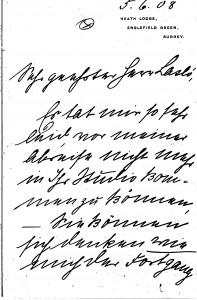 5.6.08
HEATH LODGE,
ENGLEFIELD GREEN,
SURREY.
Sehr geehrter Herr Laszló,
Es tat mir so sehr
leid vor meiner
Abreise nicht mehr
in Ihr Studio kom-
men zu können,
– Sie können
sich denken wie
mich der Fortgang